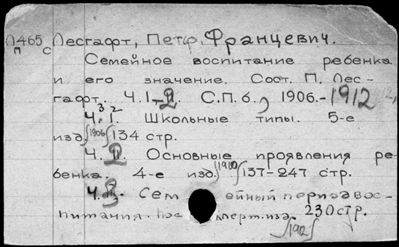 Л465 с Лесгафт, Петр Францевич.
п
Семейное воспитание ребенка
и его значение. Сост. П. Лес-
гафт. Ч.1-2. С.П.б., 1906.-1912
3 2
Ч. 1. Школьные типы. 5-е
изд. 1906 134 стр.
Ч. 2. Основные проявления ре-
бенка. 4-е изд. 1910 137-247 стр.
Ч. 3. Сем ейный период вос-
питания. Пос мерт. изд. 230 стр.
1912